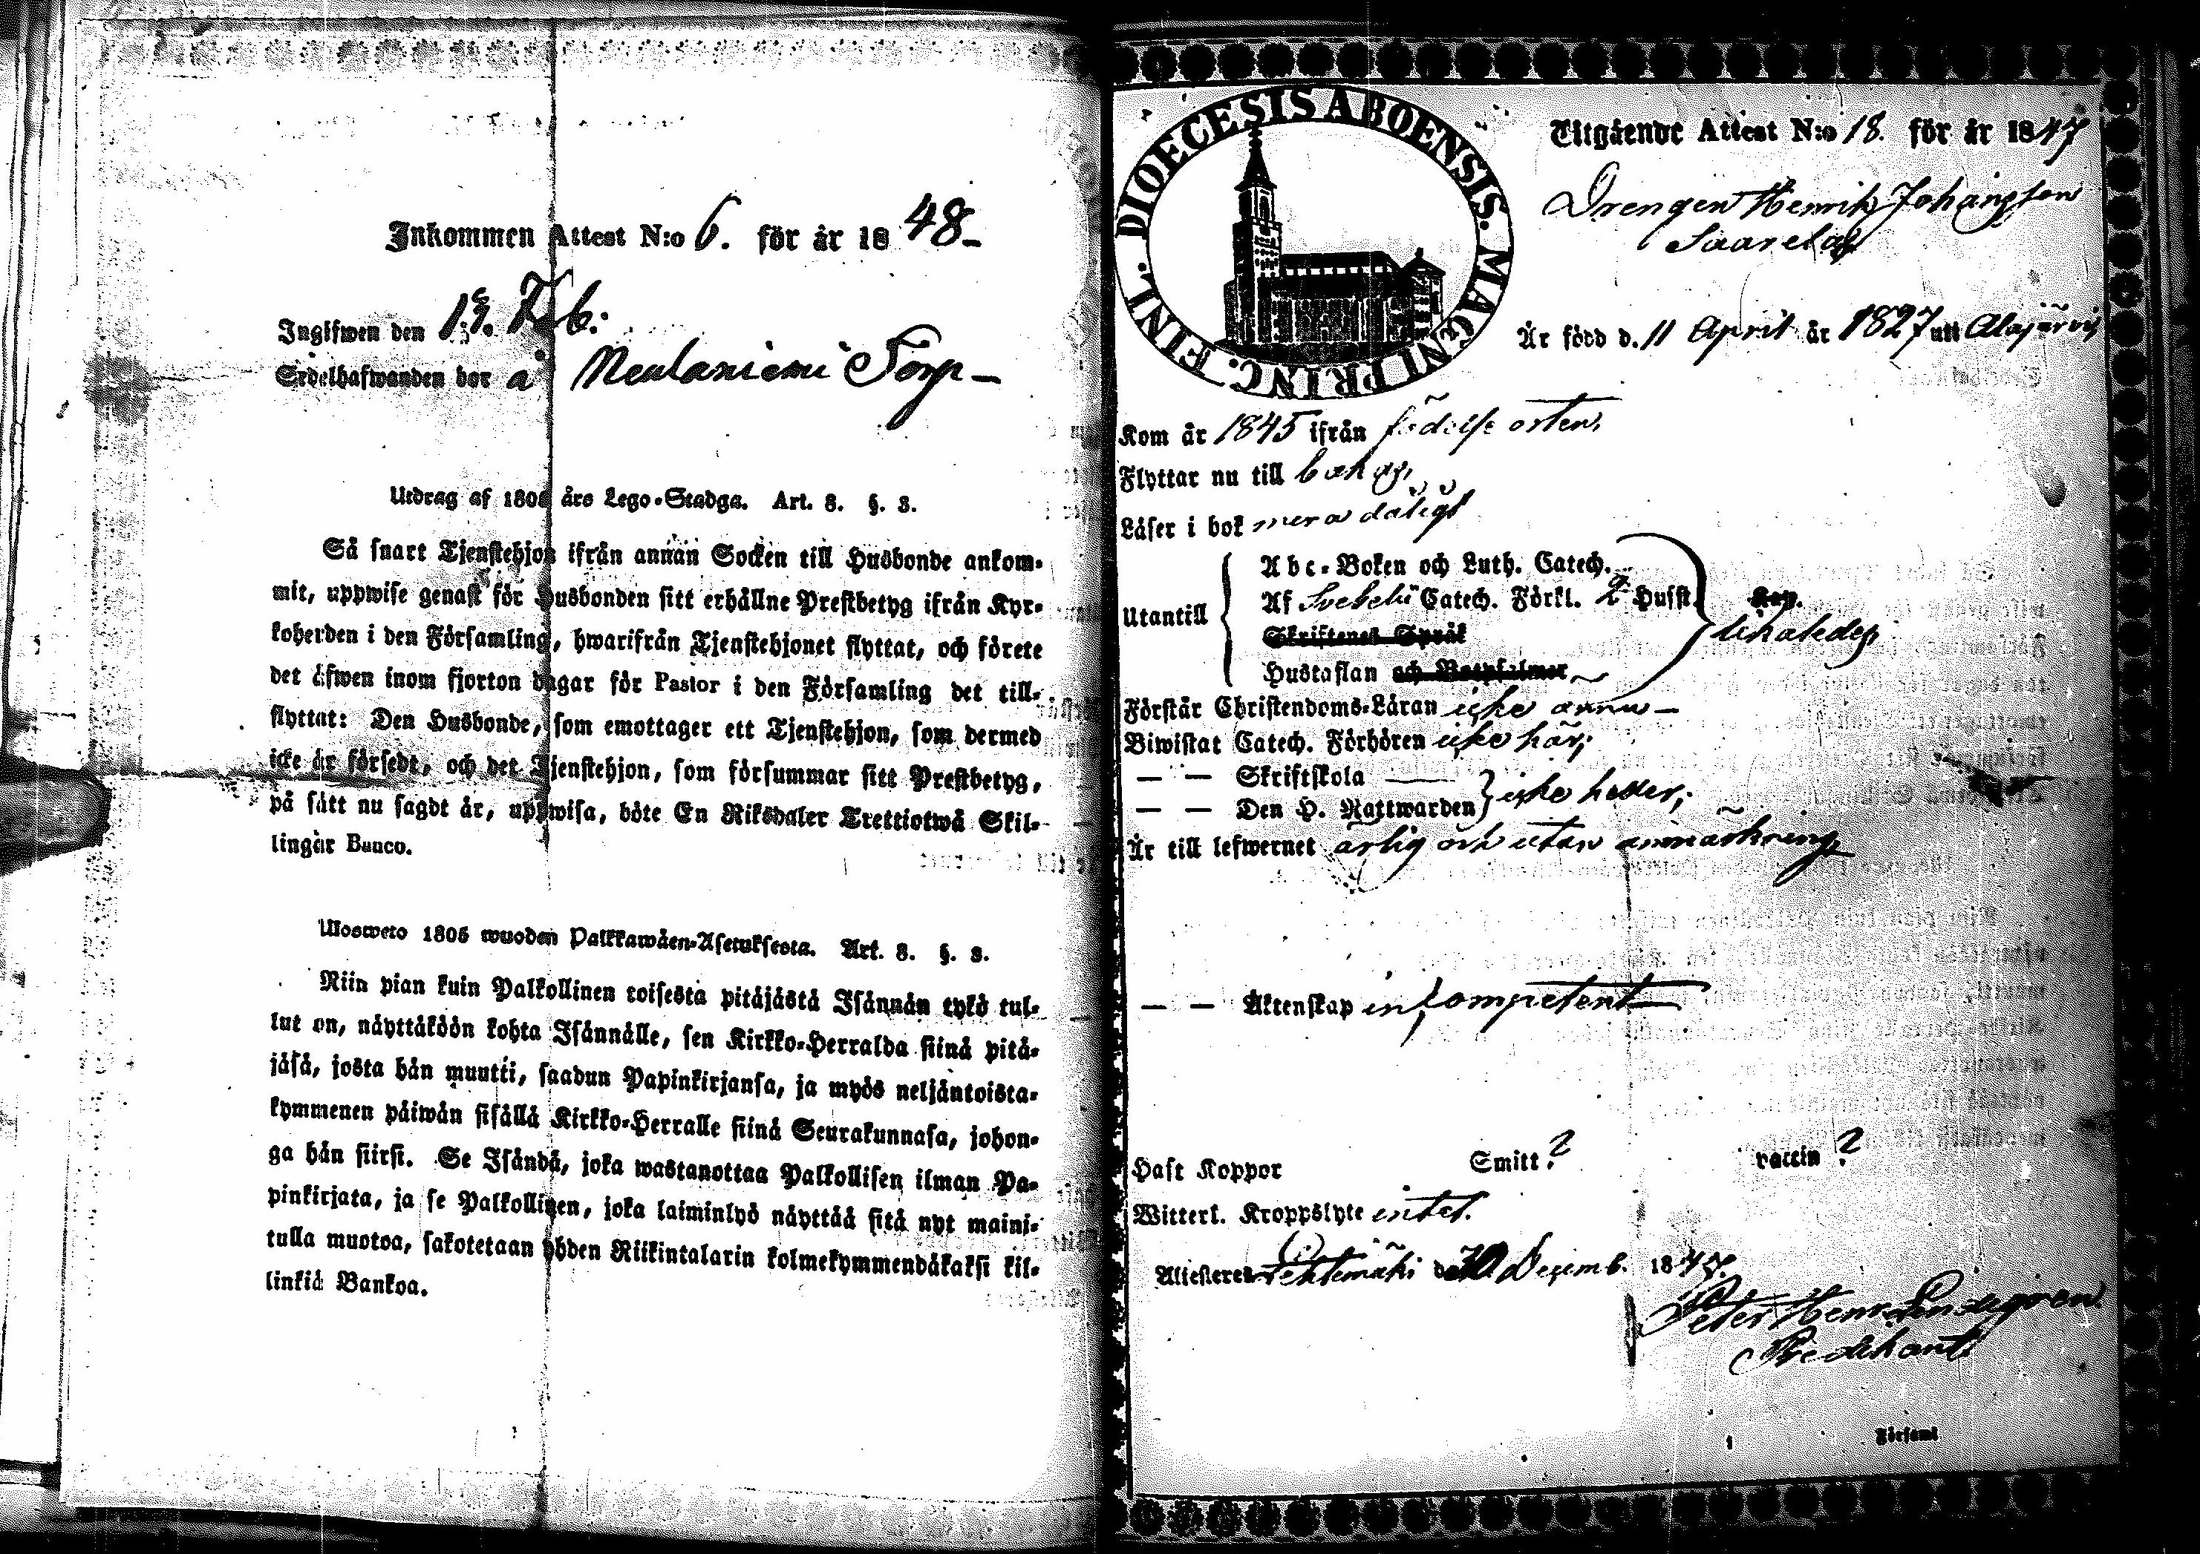 Inkommen Attest N:o 6. för år 1848-
Ingifwen den 13. Feb:
Sedelhafwanden bor å Neulaniemi Torp-
Utdrag af 1805 års Lego-Stadga. Art. 8. §. 3.
Så snart Tjenstehjon ifrån annan Socken till Husbonde ankom-
mit, uppwise genast för Husbonden sitt erhållne Prestbetyg ifrån Kyr-
koherden i den Församling, hwarifrån Tjenstehjonet flyttat, och förete
det äfwen inom fjorton dagar för Pastor i den Församling det till-
flyttat: Den Husbonde, som emottager ett Tjenstehjon, som dermed
icke är försedt, och det Tjenstehjon, som försummar sitt Prestbetyg,
på sätt nu sagdt är, uppwisa, böte En Riksdaler Trettiotwå Skil-
lingar Banco.
Ulosweto 1805 wuoden Palkkawäen-Asetuksesta. Art. 8. §. 3.
Niin pian kuin Palkollinen toisesta pitäjästä Isännän tykö tul-
lut on, näyttäköön kohta Isännälle, sen Kirkko-Herralda siinä pitä-
jäsä, josta hän muutti, saadun Papinkirjansa, ja myös neljäntoista-
kymmenen päiwän sisällä Kirkko-Herralle siinä Seurakunnasa, johon-
ga hän siirsi. Se Isändä, joka wastanottaa Palkollisen ilman Pa-
pinkirjata, ja se Palkollinen, joka laiminlyö näyttää sitä nyt maini-
tulla muotoa, sakotetaan yhden Riikintalarin kolmekymmendäkaksi kil-
linkiä Bankoa.
DIOECESIS ABOENSIS. MAGNI PRINC. FINL.
Utgående Attest N:o 18. för år 1847
Drengen Henrik Johansson
Saarela
Är född d. 11 April år 1827 uti Alajärvi
Kom år 1845 ifrån födelse orten,
Flyttar nu till behag,
Läser i bok mera dåligt
Utantill
Abc-Boken och Luth. Catech.
Af Svebelii Catech. Förkl. 2 Husst. Kap.
Skriftenes Språk
likaledes
Hustaflan och Botpsalmer
Förstår Christendoms-Läran icke ännu-
Biwistat Catech. Förhören icke här;
— — Skriftskola
— — Den H. Nattwarden icke heller;
Är till lefwernet ärlig och utan anmärkning
— — Äktenskap incompetent
Haft Koppor Smitt ? vaccin ?
Witterl. Kroppslyte intet.
Attesteres Lehtimäki d. 30 Decemb. 1847.
Peter Henr. Lindegren
Predikant
Församl